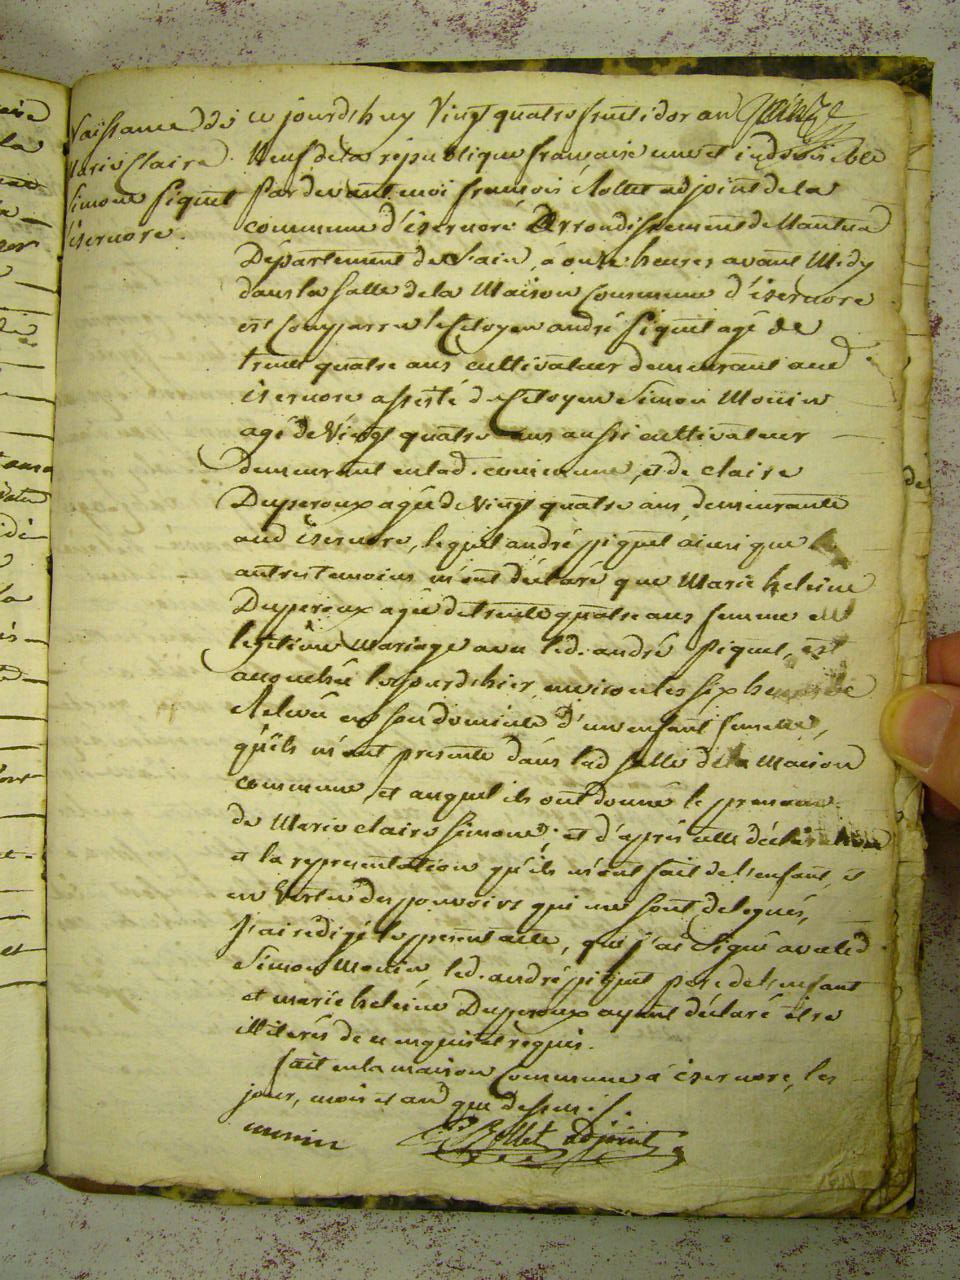 Naissance de
Marie Claire
Simone Piquet
isernore.
ce jourd'huy Vingt quatre fructidor an
Neuf de la république francaise une et indivisible
Pardevant moi francois Rollet adjoint de la
commune d'isernore Arrondissement de Nantua
Département de l'ain, à onze heures avant Midy
dans la salle de la Maison Commune d'isernore
est Comparru le Citoyen andré Piquet agé de
trente quatre ans cultivateur demeurant aud
isernore assisté du Citoyen Simon Monin
agé de Vingt quatre ans aussi cultivateur
demeurant en lad. commune, et de claire
Duperoux agée de Vingt quatre ans, demeurante
aud isernore, lequel andré piquet ainsi que
autres temoins m'ont déclaré que Marie heleine
Duperoux agée de trente quatre ans femme en
legitime Mariage avec led. andré Piquet, est
accouchée le jourd'hier environ les six heures de
Relevée en son domicile d'un enfant femelle,
qu'ils m'ont presenté dans lad salle de la Maison
commune, et auquel ils ont donné le prenom
de Marie claire Simone; et d'après cette déclaration
et la representation qu'ils m'ont fait de l'enfant, et
en Vertu des pouvoirs qui me sont delegués,
J'ai rédigé le present acte, que j'ai Signé avec led.
Simon Monin, led. andré piquet pere de l'enfant
et marie heleine Duperoux ayant déclaré être
illiterés de ce enquis et requis.
fait en la maison Commune d'isernore, les
jour, mois et an que dessus /.
monin Rollet adjoint